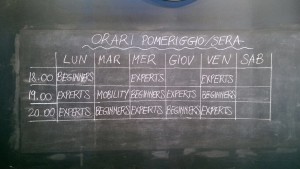 ORARI POMERIGGIO/SERA
LUN MAR MER GIOV VEN SAB
18.00 BEGINNERS EXPERTS EXPERTS
19.00 EXPERTS MOBILITY BEGINNERS EXPERTS BEGINNERS
20.00 EXPERTS BEGINNERS EXPERTS BEGINNERS EXPERTS